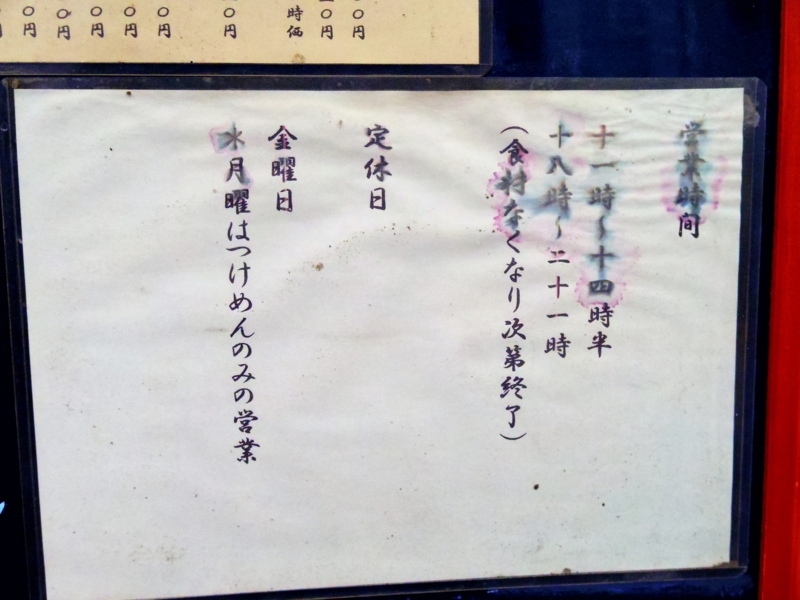 営業時間
十一時〜十四時半
十八時〜二十一時
(食材なくなり次第終了)
定休日
金曜日
水月曜はつけめんのみの営業
〇円
〇円
時価
〇円
〇円
〇円
〇円
〇円
〇円